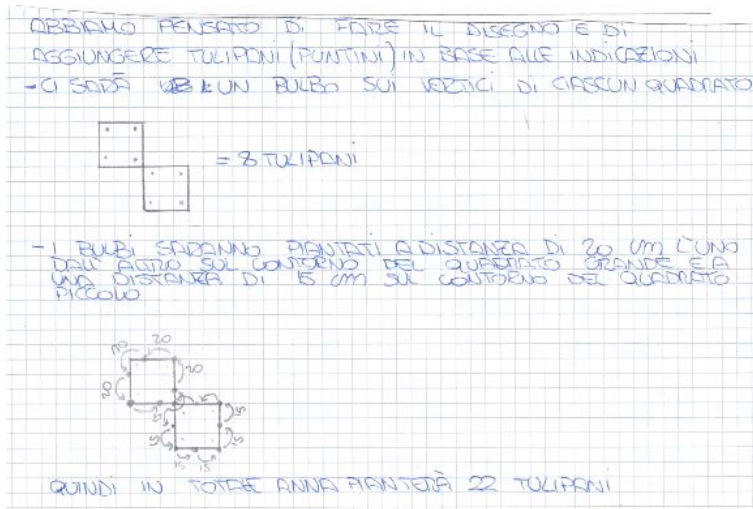 ABBIAMO PENSATO DI FARE IL DISEGNO E DI
AGGIUNGERE TULIPANI (PUNTINI) IN BASE ALLE INDICAZIONI
- CI SARÀ UN BULBO SUI VERTICI DI CIASCUN QUADRATO
= 8 TULIPANI
- I BULBI SARANNO PIANTATI A DISTANZA DI 20 CM L'UNO
DALL'ALTRO SUL CONTORNO DEL QUADRATO GRANDE E A
UNA DISTANZA DI 15 CM SUL CONTORNO DEL QUADRATO
PICCOLO
20 20
20
20
15
15 15
15 15
15 15
QUINDI IN TOTALE ANNA PIANTERÀ 22 TULIPANI